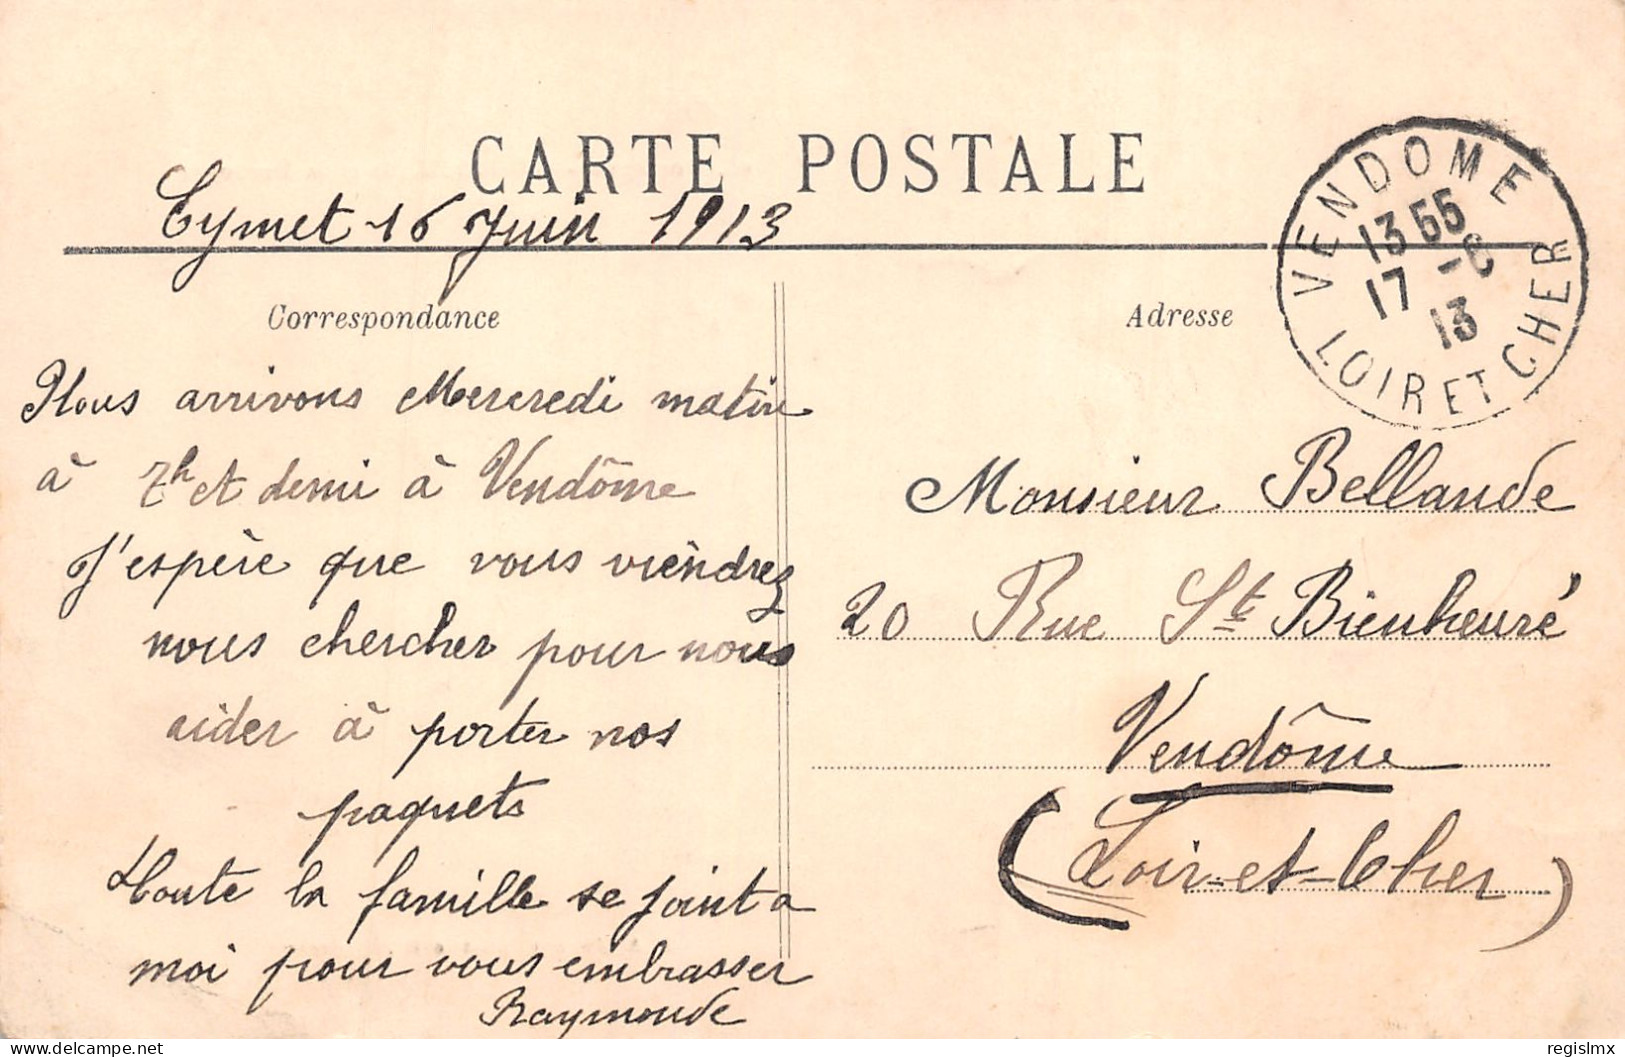 CARTE POSTALE
Eymet 16 Juin 1913
Correspondance
Nous arrivons Mercredi matin
à 7h et demi à Vendôme
J'espère que vous viendrez
nous chercher pour nous
aider à porter nos
paquets
Toute la famille se joint a
moi pour vous embrasser
Raymonde
Adresse
VENDOME
13 55
17 -6
13
LOIR ET CHER
Monsieur Bellande
20 Rue St Bienheuré
Vendôme
(Loir-et-Cher)
delcampe.net
regislmx